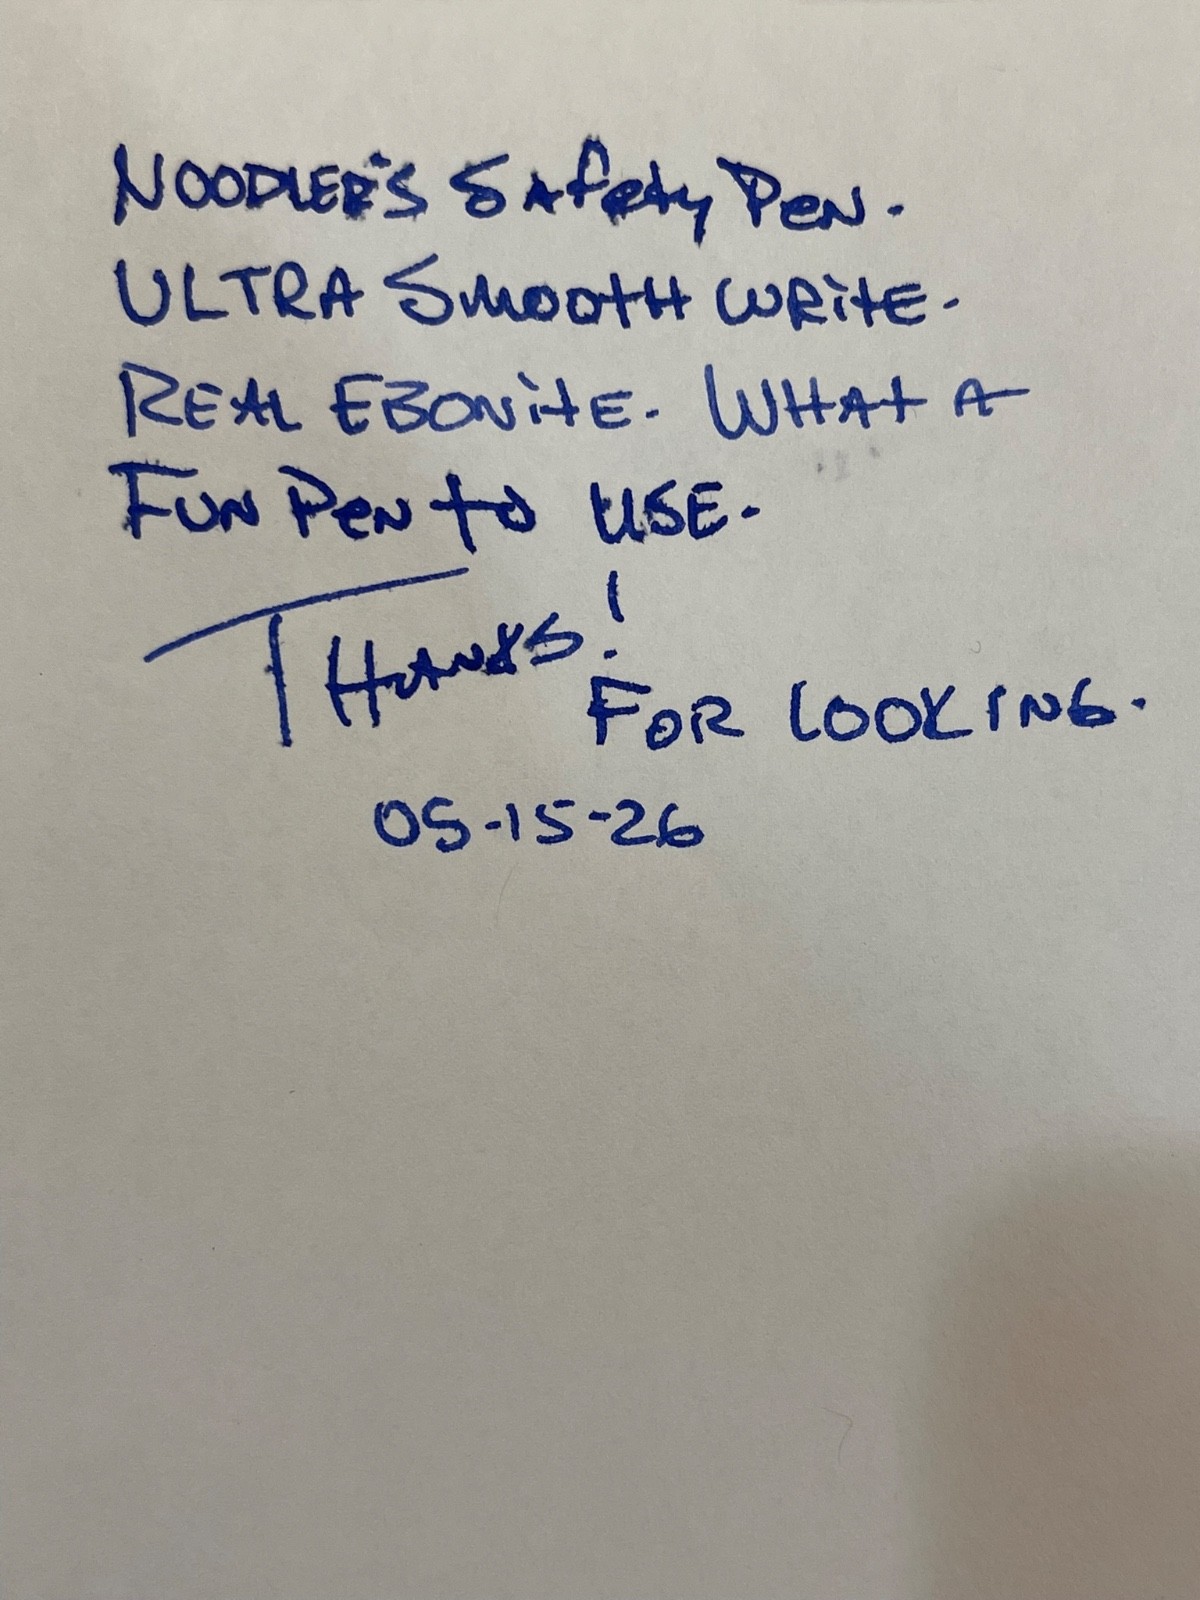 NOODLER'S SAfety PeN.
ULTRA SMOOTH WRiTE.
REAL EBONiTE. WHAT A
FUN PeN to USE.
THANKS!
FOR LOOKING.
05-15-26